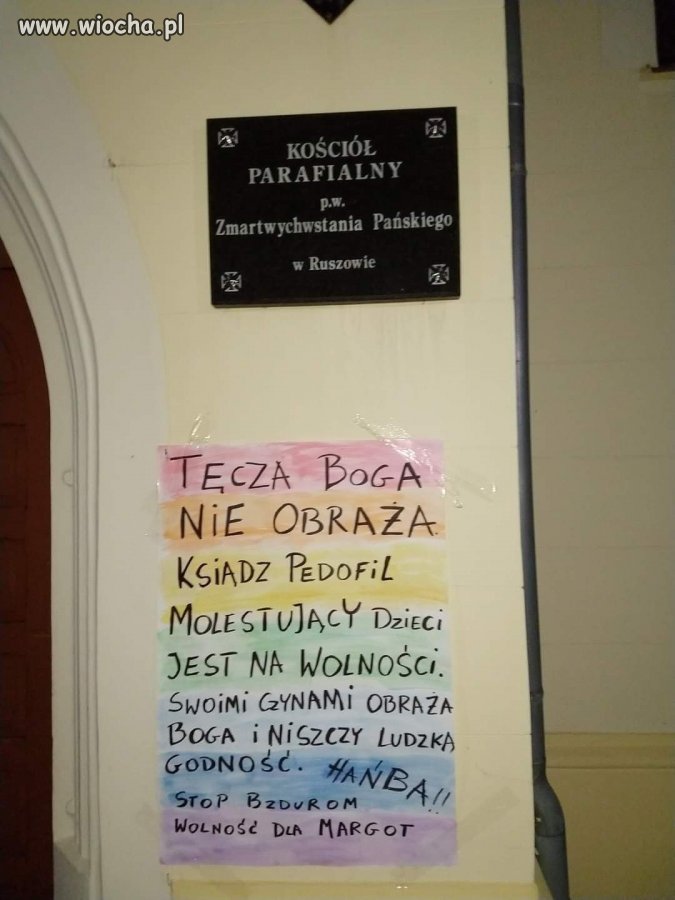 www.wiocha.pl
KOŚCIÓŁ
PARAFIALNY
p.w.
Zmartwychwstania Pańskiego
w Ruszowie
TĘCZA BOGA
NIE OBRAŻA.
KSIĄDZ PEDOFIL
MOLESTUJĄCY DZIECI
JEST NA WOLNOŚCI.
SWOIMI CZYNAMI OBRAŻA
BOGA i NISZCZY LUDZKĄ
GODNOŚĆ. HAŃBA!!
STOP BZDUROM
WOLNOŚĆ DLA MARGOT